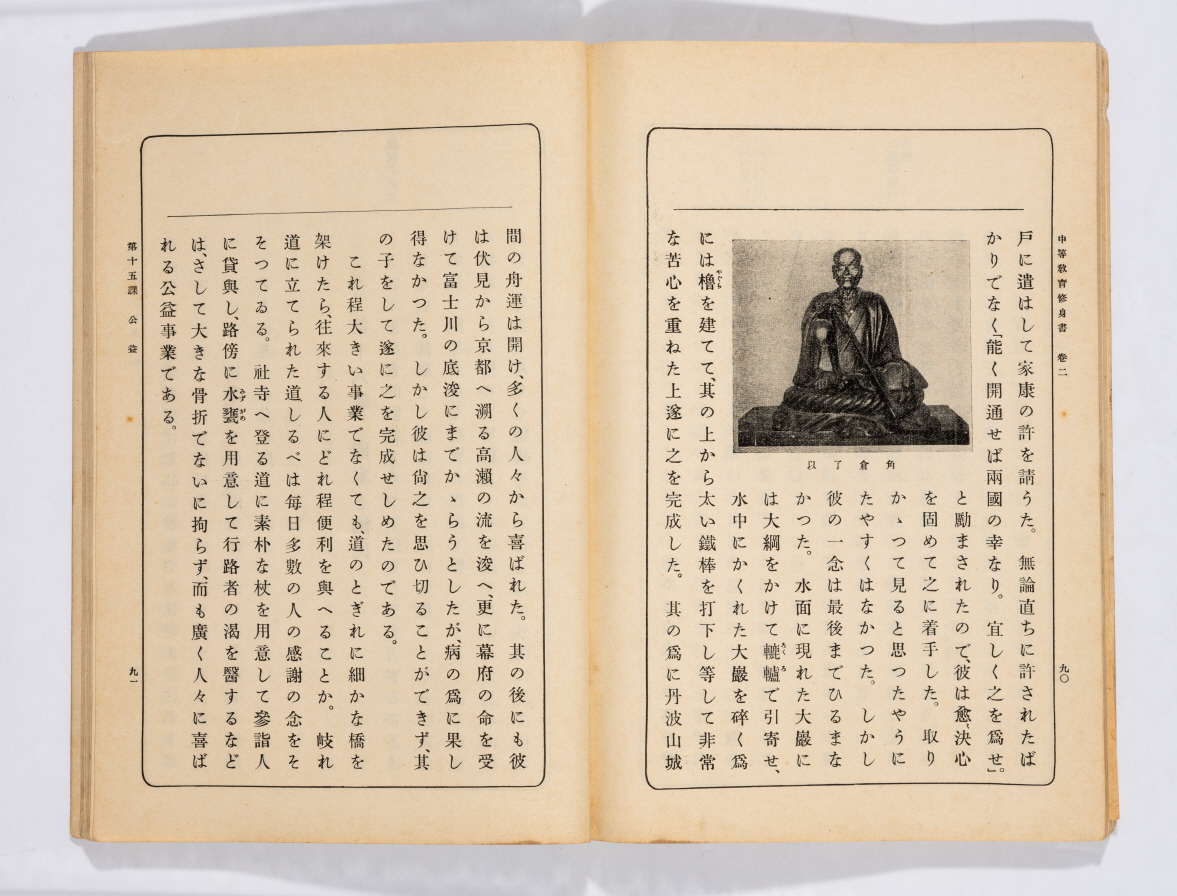 中等敎育修身書 卷二
九〇
戶に遣はして家康の許を請うた。 無論直ちに許されたば
かりでなく、「能く開通せば兩國の幸なり。 宜しく之を爲せ」。
と勵まされたので、彼は愈〻決心
を固めて之に着手した。 取り
かゝつて見ると思つたやうに
たやすくはなかつた。 しかし
彼の一念は最後までひるまな
かつた。 水面に現れた大巖に
は大綱をかけて轆轤で引寄せ、
ろくろ
水中にかくれた大巖を碎く爲
には櫓を建てて、其の上から太い鐵棒を打下し等して非常
やぐら
な苦心を重ねた上遂に之を完成した。 其の爲に丹波山城
角倉了以
間の舟運は開け、多くの人々から喜ばれた。 其の後にも彼
は伏見から京都へ溯る高瀨の流を浚へ、更に幕府の命を受
けて富士川の底浚にまでかゝらうとしたが、病の爲に果し
得なかつた。 しかし彼は尙之を思ひ切ることができず、其
の子をして遂に之を完成せしめたのである。
これ程大きい事業でなくても、道のとぎれに細かな橋を
架けたら、往來する人にどれ程便利を與へることか。 岐れ
道に立てられた道しるべは每日多數の人の感謝の念をそ
そつてゐる。 社寺へ登る道に素朴な杖を用意して參詣人
に貸與し、路傍に水甕を用意して行路者の渴を醫するなど
みづがめ
は、さして大きな骨折でないに拘らず、而も廣く人々に喜ば
れる公益事業である。
第十五課 公益
九一